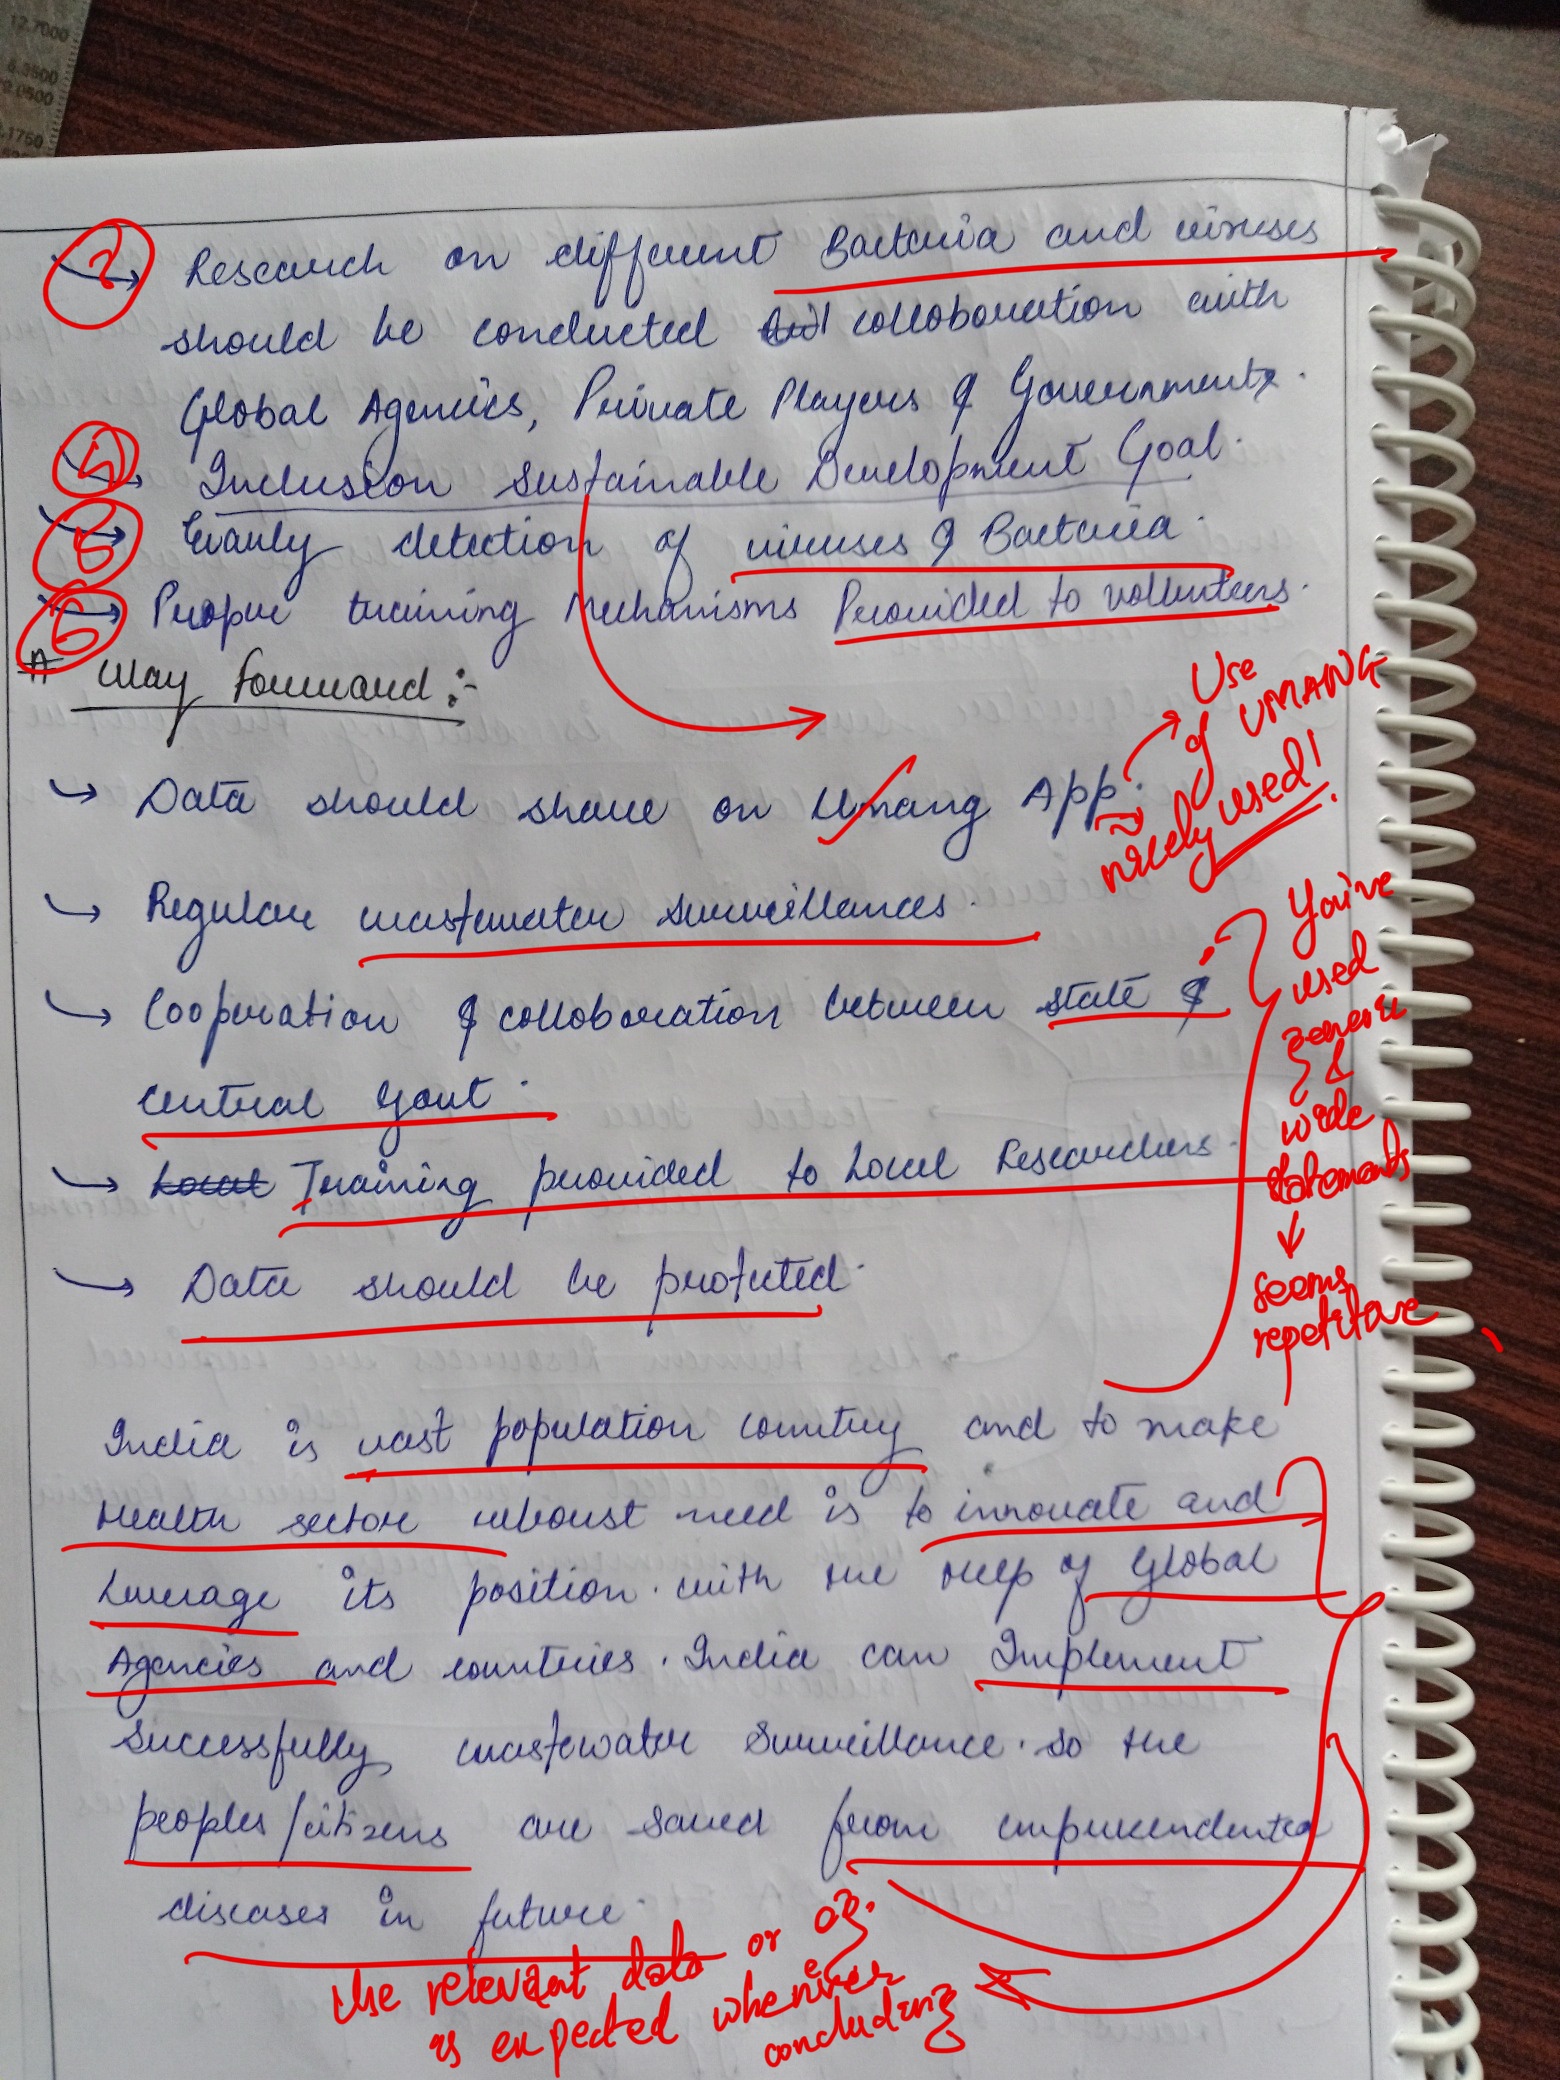 12.7000
.1750
? → Research on different Bacteria and viruses
should be conducted collaboration with
Global Agencies, Private Players & Governments.
→ Inclusion Sustainable Development Goal.
→ Early detection of viruses & Bacteria.
→ Proper training Mechanisms Provided to vollunteers.
Way Forward :-
→ Data should share on Umang App.
Use
of UMANG
nicely used!
→ Regular wastewater surveillances.
→ Cooperation & collaboration between state &
central Govt.
→ Local Training provided to Local Researchers.
→ Data should be protected.
You've
used
generic
&
wide
statements
↓
seems
repetitive
India is vast population country and to make
Health sector roboust need is to innovate and
Leverage its position. with the help of Global
Agencies and countries. India can Implement
Successfully wastewater Surveillance. so the
peoples/citizens are saved from
diseases in future.
Use relevant data or eg.
is expected whenever
concluding